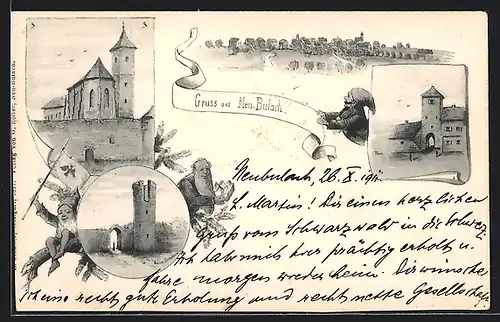 Gruss aus Neu-Bulach.
Neubulach, 26. X. 191.
L. Martin! Dir einen herzlichen
Gruß vom Schwarzwald in die Schweiz
Ich hab mich hier prächtig erholt u.
fahre morgen wieder heim. Dir wünsche
ich eine recht gute Erholung und recht nette Gesellschaft